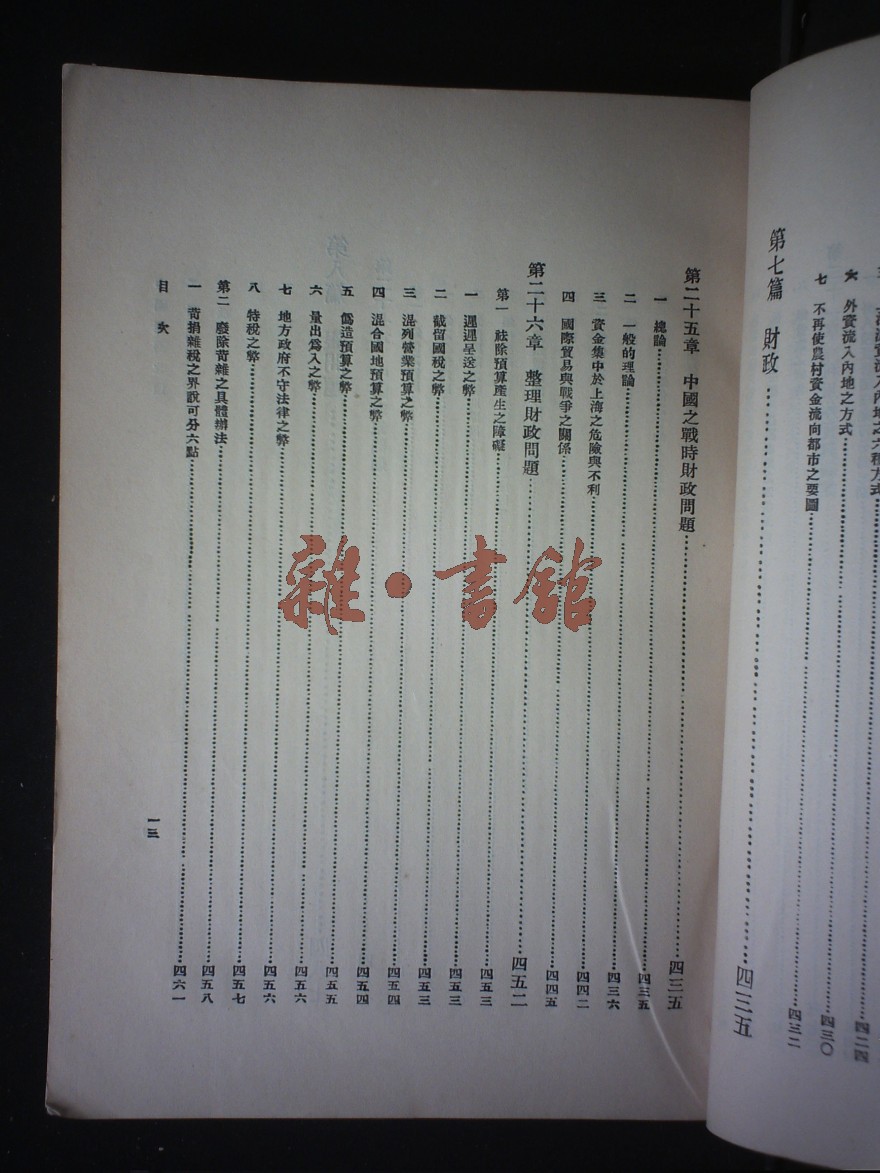 六 外資流入內地之方式……四二四
七 不再使農村資金流向都市之要圖……四三〇
四三二
第七篇 財政……四三五
第二十五章 中國之戰時財政問題……四三五
一 總論……四三五
二 一般的理論……四三六
三 資金集中於上海之危險與不利……四四二
四 國際貿易與戰爭之關係……四四五
第二十六章 整理財政問題……四五二
第一 祛除預算產生之障礙……四五三
一 遲遲呈送之弊……四五三
二 截留國稅之弊……四五三
三 混列營業預算之弊……四五四
四 混合國地預算之弊……四五四
五 偽造預算之弊……四五五
六 量出爲入之弊……四五六
七 地方政府不守法律之弊……四五六
八 特稅之弊……四五七
第二 廢除苛雜之具體辦法……四五八
一 苛捐雜稅之界說可分六點……四六一
目次
一三
雜·書館